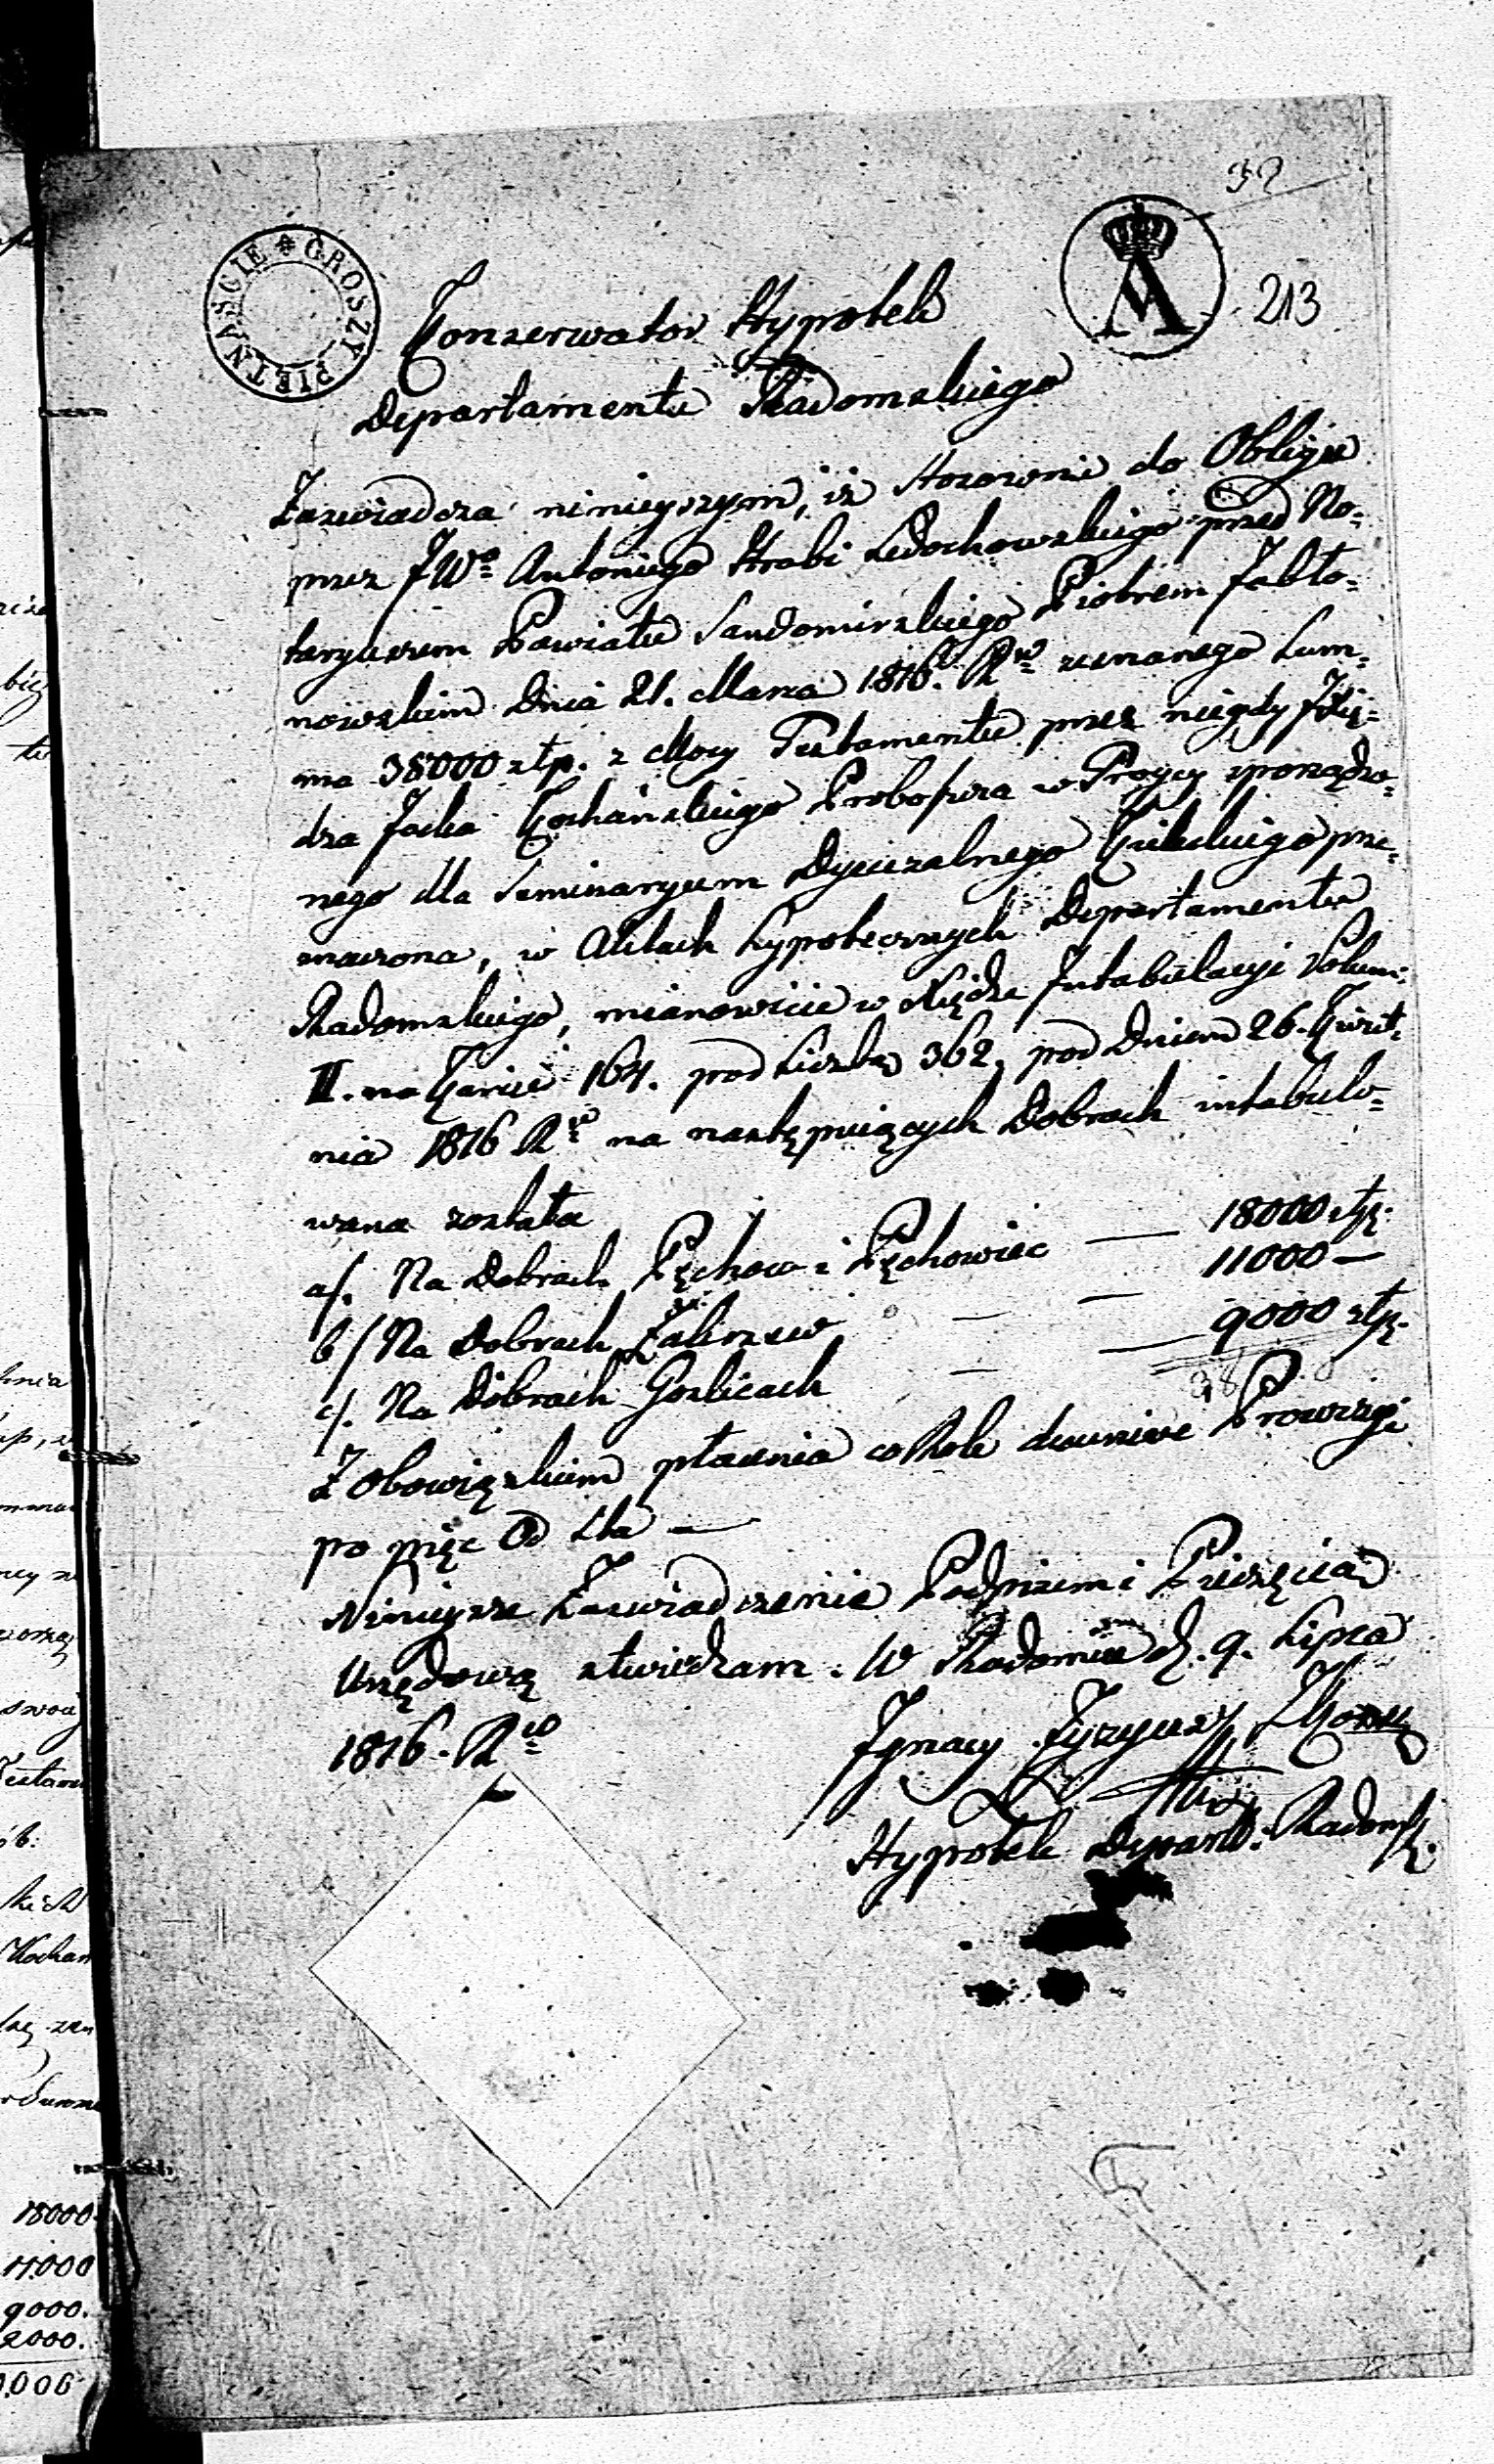 32
GROSZY PIĘTNAŚCIE
A
213
Konserwator Hypotek
Departamentu Radomskiego
Zaswiadcza ninieyszym, iż stosownie do Obligu
przez JWo Antoniego Hrabi Ledochowskiego przed No=
taryuszem Powiatu Sandomirskiego Piotrem Jabło=
nowskim Dnia 21. Marca 1816. Rw zeznanego Sum=
ma 38000 złp. z Mocy Testamentu przez niegdy Xię=
dza Jacka Kochańskiego Proboszcza w sporządzo=
nego dla Seminaryum Dyecezalnego Kieleckiego prze=
znaczona, w Aktach hypotecznych Departamentu
Radomskiego, mianowicie w Xiędze Intabulacyi Volum:
II. na Karcie 164. pod Liczbą 362, pod Dniem 26. Kwiet=
nia 1816 Ro na następuiących Dobrach intabulo=
wana została
a/. Na Dobrach Pęchow i Pęchowiec — 18000 złp.
b/ Na Dobrach — 11000 —
c/. Na Dobrach Gorlicach — 9000 złp.
38
Z Obowiązkiem płacenia co Rok Prowizyi
po pięc Od Sta —
Ninieysze Zaswiadczenie Podpisem i Pieczęcią
Urzędową stwierdzam. W Radomiu d. 9. Lipca
1816. Ro
Ignacy
Hypotek Depart: Radomsk.
18000
11.000
9000.
2000.